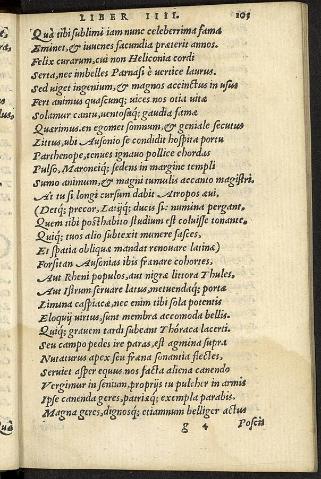 LIBER IIII. 105
Quà tibi sublimi iam nunc celeberrima fama
Eminet, & iuuenes facundia præterit annos.
Felix curarum, cui non Heliconia cordi
Serta, nec imbelles Parnasi è uertice laurus.
Sed uiget ingenium, & magnos accinctus in usus
Fert animus quascunq; uices nos otia uitæ
Solamur cantu, uentosaq; gaudia famæ
Quærimus. en egomet somnum, & geniale secutus
Littus, ubi Ausonio se condidit hospita portu
Parthenope, tenues ignauo pollice chordas
Pulso, Maroneiq; sedens in margine templi
Sumo animum, & magni tumulis accanto magistri.
At tu si longi cursum dabit Atropos æui,
(Detq; precor, Latijq; ducis si numina pergant,
Quem tibi posthabito studium est coluisse tonante.
Quiq; tuos alio subtexit munere fasces,
Et spatia obliquæ mandat renouare latinæ)
Forsitan Ausonias ibis frænare cohortes,
Aut Rheni populos, aut nigræ littora Thules,
Aut Istrum seruare latus, metuendaq; portæ
Limina caspiacæ, nec enim tibi sola potentis
Eloquij uirtus, sunt membra accomoda bellis.
Quiq; grauem tardi subeant Thóraca lacerti.
Seu campo pedes ire paras, est agmina supra
Nutaturus apex seu fræna sonantia flectes,
Seruiet asper equus. nos facta aliena canendo
Vergimur in senium, proprijs tu pulcher in armis
Ipse canenda geres, patriæq; exempla parabis.
Magna geres, dignosq; etiamnum belliger actus
g 4 Poscis